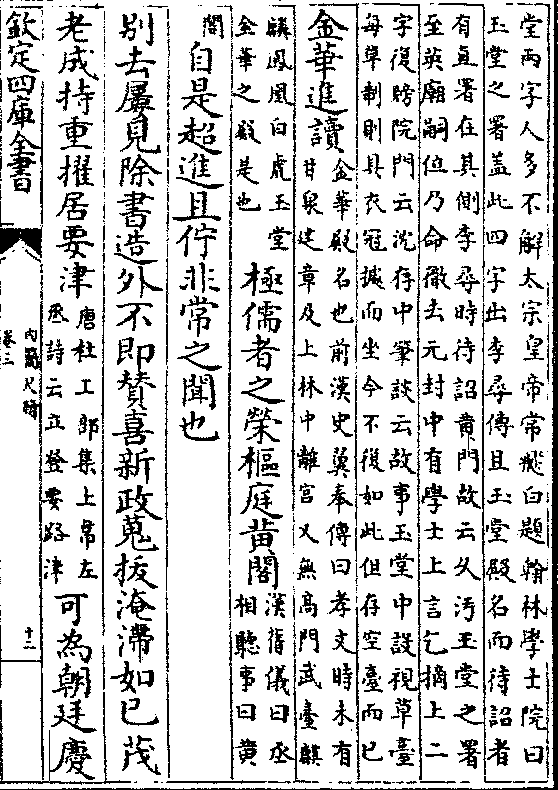 堂兩字人多不解太宗皇帝常飛白題翰林學士院曰
玉堂之署蓋此四字出李尋傳且玉堂殿名而待詔者
有直署在其側李尋時待詔黃門故云久汚玉堂之署
至英廟嗣位乃命徹去元封中有學士上言乞摘上二
字復牓院門云沈存中筆談云故事玉堂中設視草臺
每草制則具衣冠據而坐今不復如此但存空臺而已
金華進讀金華殿名也前漢史翼奉傳曰孝文時未有甘泉建章及上林中離宮又無高門武臺麒
麟鳳凰白虎玉堂金華之殿是也極儒者之榮樞庭黃閣漢舊儀曰丞相聽事曰黃
閣自是超進且佇非常之聞也
别去屢見除書造外不即賛喜新政蒐拔淹滯如已茂
老成持重擢居要津唐杜工部集上韋左丞詩云立登要路津可為朝廷慶
欽定四庫全書
內簡尺牘
卷三
十二